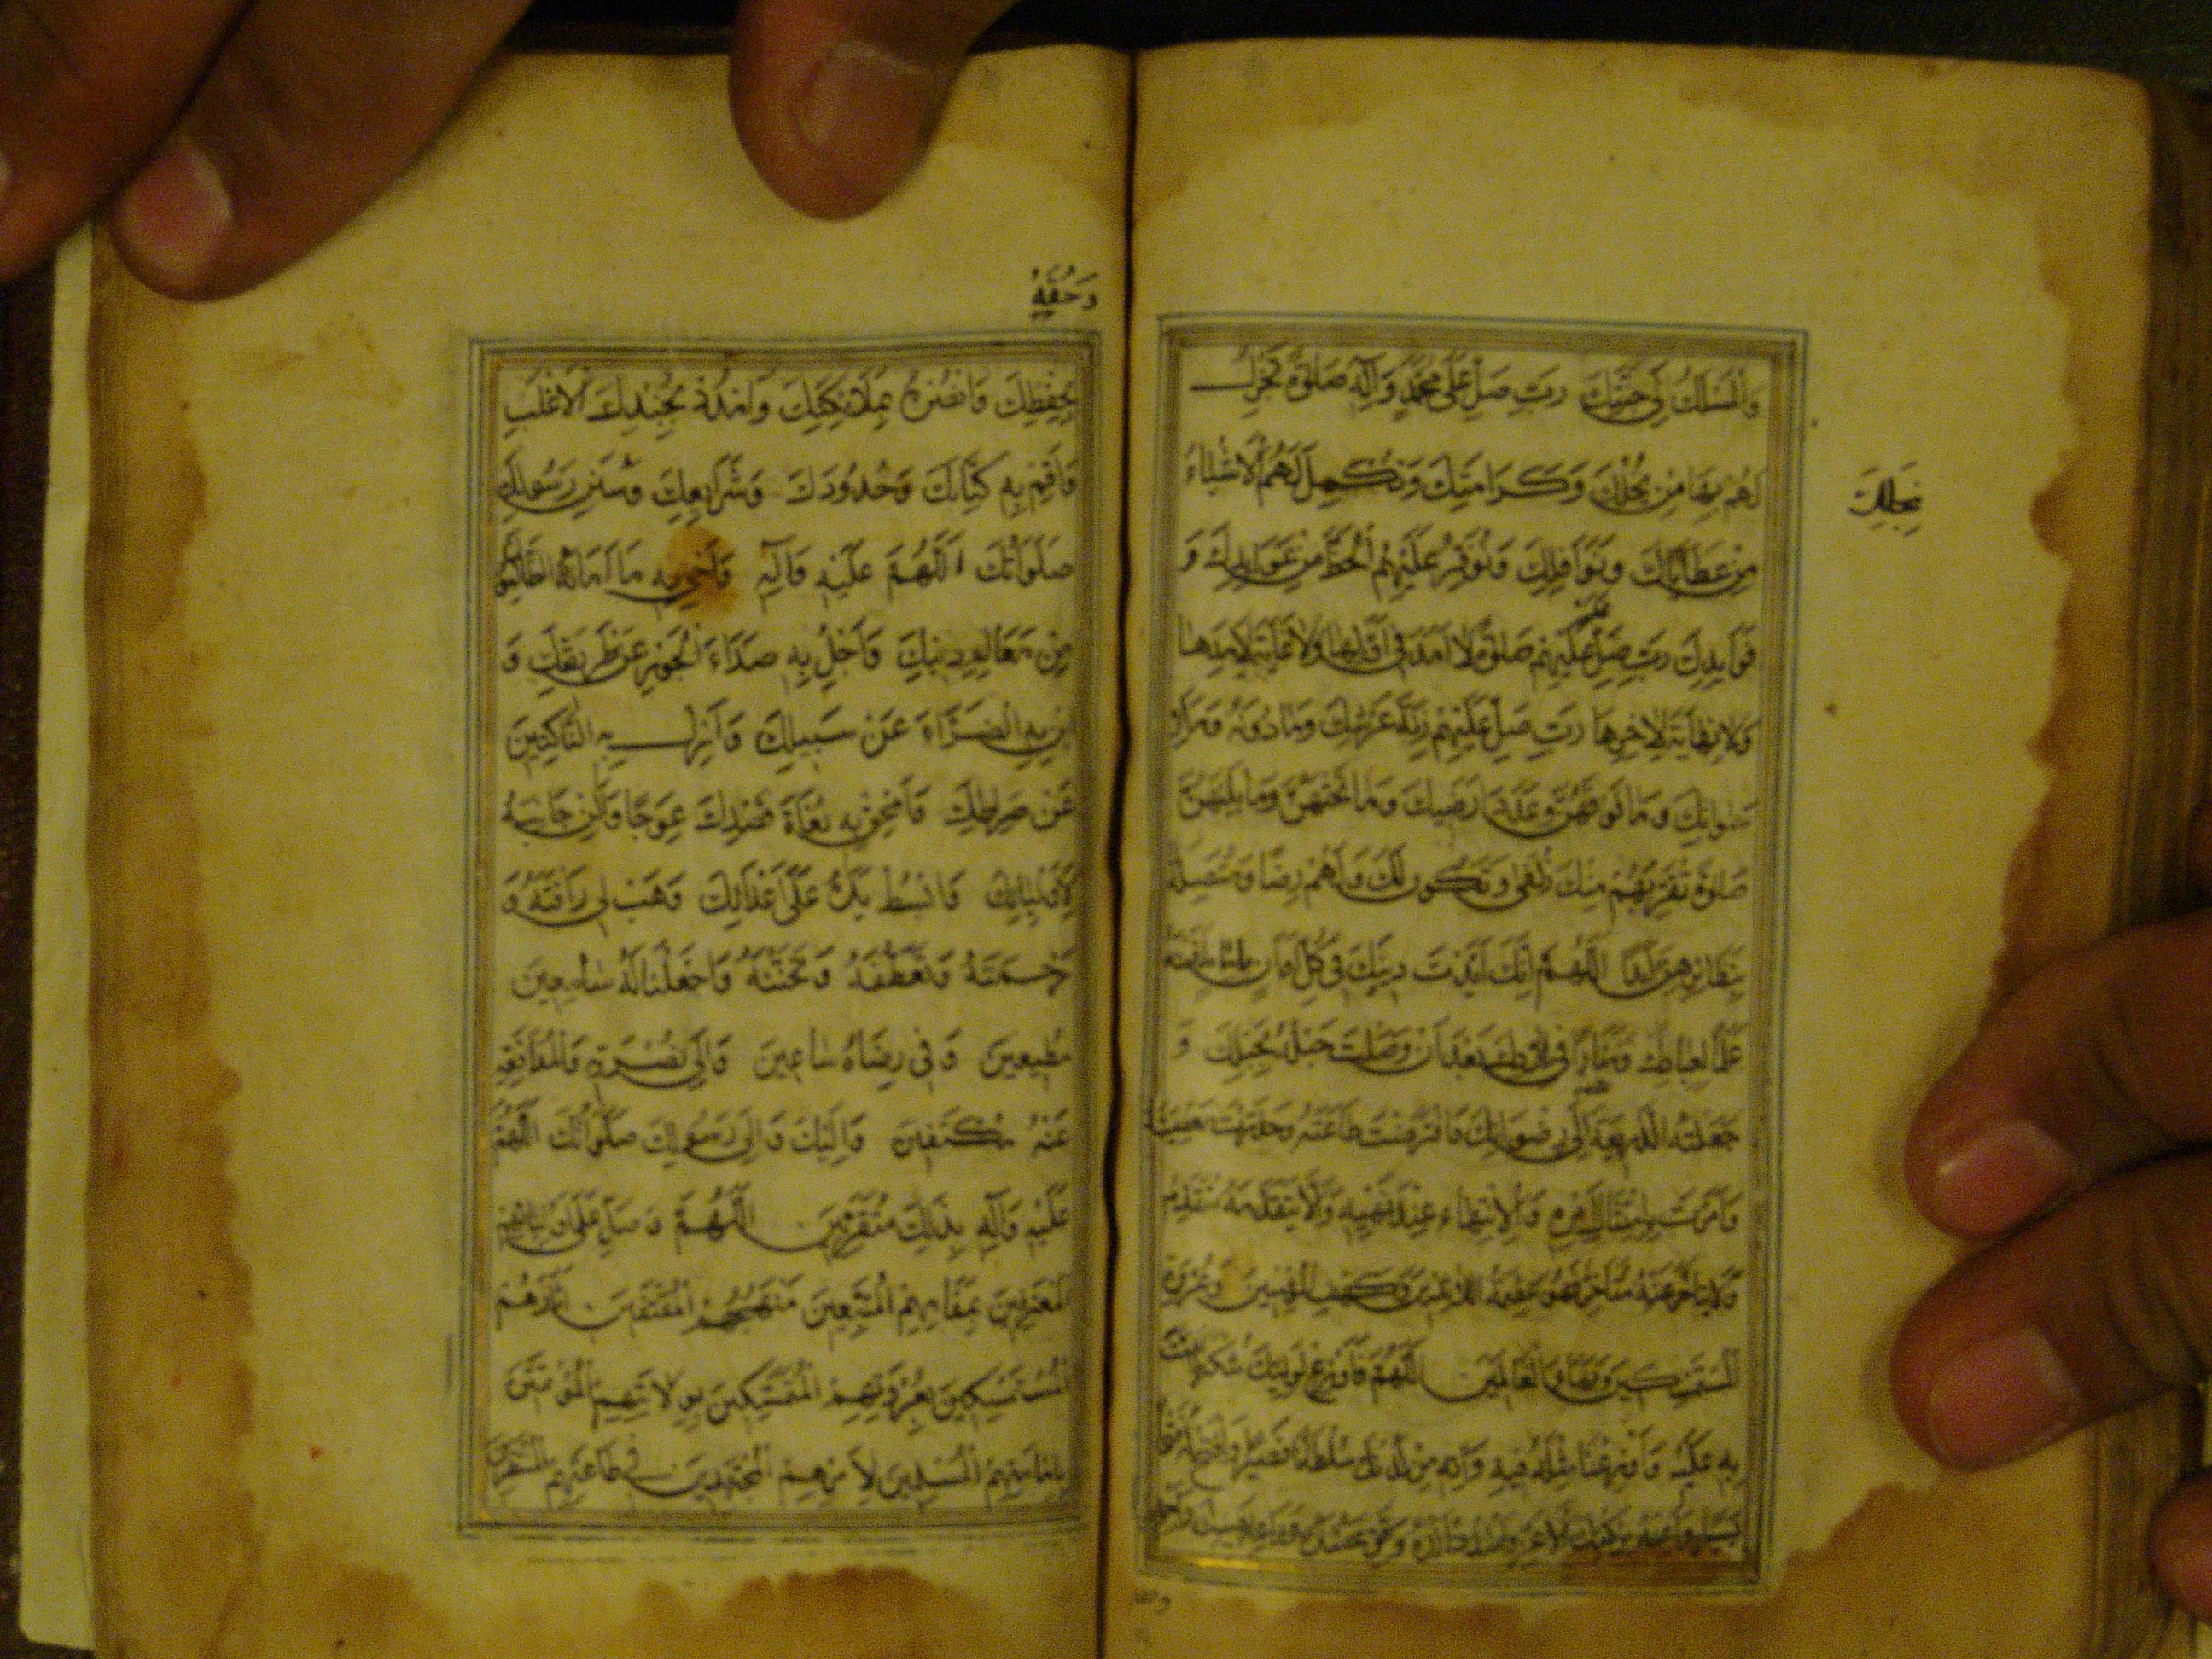 وَالْمَسْلَكَ إِلَى جَنَّتِكَ رَبِّ صَلِّ عَلَى مُحَمَّدٍ وَآلِهِ صَلَوةً تُجْزِلُ
لَهُمْ بِهَا مِنْ نُحْلِكَ وَكَرَامَتِكَ وَتُكْمِلُ لَهُمُ الْأَشْيَاءَ
مِنْ عَطَايَاكَ وَنَوَافِلِكَ وَتُوَفِّرُ عَلَيْهِمُ الْحَظَّ مِنْ عَوَائِدِكَ وَ
فَوَائِدِكَ رَبِّ صَلِّ عَلَيْهِمْ صَلوةً لَا أَمَدَ فِي أَوَّلِهَا وَلَا غَايَةَ لِأَمَدِهَا
وَلَا نِهَايَةَ لِآخِرِهَا رَبِّ صَلِّ عَلَيْهِمْ زِنَةَ عَرْشِكَ وَمَا دُونَهُ وَمِلْأَ
سَمَوَاتِكَ وَمَا فَوْقَهُنَّ وَعَدَدَ أَرَضِيكَ وَمَا تَحْتَهُنَّ وَمَا بَيْنَهُنَّ
صَلَوةً تُقَرِّبُهُمْ مِنْكَ زُلْفَى وَتَكُونُ لَكَ وَلَهُمْ رِضًا وَمُتَّصِلَةً
بِنَظَائِرِهِنَّ أَبَدًا اللَّهُمَّ إِنَّكَ أَيَّدْتَ دِينَكَ فِي كُلِّ أَوَانٍ بِإِمَامٍ أَقَمْتَهُ
عَلَمًا لِعِبَادِكَ وَمَنَارًا فِي بِلَادِكَ بَعْدَ أَنْ وَصَلْتَ حَبْلَهُ بِحَبْلِكَ وَ
جَعَلْتَهُ الذَّرِيعَةَ إِلَى رِضْوَانِكَ وَافْتَرَضْتَ طَاعَتَهُ وَحَذَّرْتَ مَعْصِيَتَهُ
وَأَمَرْتَ بِامْتِثَالِ أَمْرِهِ وَالْاِنْتِهَاءِ عِنْدَ نَهْيِهِ وَلَا يَتَقَدَّمَهُ مُتَقَدِّمٌ
وَلَا يَتَأَخَّرَ عَنْهُ مُتَأَخِّرٌ فَهُوَ عِصْمَةُ اللَّائِذِينَ وَكَهْفُ الْمُؤْمِنِينَ وَعُرْوَةُ
الْمُتَمَسِّكِينَ وَبَهَاءُ الْعَالَمِينَ اللَّهُمَّ فَأَوْزِعْ لِوَلِيِّكَ شُكْرَ مَا أَنْعَمْتَ
بِهِ عَلَيْهِ وَأَوْزِعْنَا مِثْلَهُ فِيهِ وَآتِهِ مِنْ لَدُنْكَ سُلْطَانًا نَصِيرًا وَافْتَحْ لَهُ فَتْحًا
يَسِيرًا وَأَعِنْهُ بِرُكْنِكَ الْأَعَزِّ وَاشْدُدْ أَزْرَهُ وَقَوِّ عَضُدَهُ وَرَاعِهِ بِعَيْنِكَ وَاحْمِهِ
بِحِفْظِكَ وَانْصُرْهُ بِمَلَائِكَتِكَ وَامْدُدْهُ بِجُنْدِكَ الْأَغْلَبِ
وَأَقِمْ بِهِ كِتَابَكَ وَحُدُودَكَ وَشَرَائِعَكَ وَسُنَنَ رَسُولِكَ
صَلَوَاتُكَ اللَّهُمَّ عَلَيْهِ وَآلِهِ وَأَحْيِ بِهِ مَا أَمَاتَهُ الظَّالِمُونَ
مِنْ مَعَالِمِ دِينِكَ وَاجْلُ بِهِ صَدَاءَ الْجَوْرِ عَنْ طَرِيقَتِكَ وَ
أَبِنْ بِهِ الضَّرَّاءَ عَنْ سَبِيلِكَ وَأَزِلْ بِهِ النَّاكِبِينَ
عَنْ صِرَاطِكَ وَامْحَقْ بِهِ بُغَاةَ قَصْدِكَ عِوَجًا وَأَلِنْ جَانِبَهُ
لِأَوْلِيَائِكَ وَابْسُطْ يَدَهُ عَلَى أَعْدَائِكَ وَهَبْ لَنَا رَأْفَتَهُ وَ
رَحْمَتَهُ وَتَعَطُّفَهُ وَتَحَنُّنَهُ وَاجْعَلْنَا لَهُ سَامِعِينَ
مُطِيعِينَ وَفِي رِضَاهُ سَاعِينَ وَإِلَى نُصْرَتِهِ وَالْمُدَافَعَةِ
عَنْهُ مُكْنِفِينَ وَإِلَيْكَ وَإِلَى رَسُولِكَ صَلَوَاتُكَ اللَّهُمَّ
عَلَيْهِ وَآلِهِ بِذَلِكَ مُتَقَرِّبِينَ اللَّهُمَّ وَصَلِّ عَلَى أَوْلِيَائِهِمُ
الْمُعْتَرِفِينَ بِمَقَامِهِمُ الْمُتَّبِعِينَ مَنْهَجَهُمْ الْمُقْتَفِينَ آثَارَهُمْ
الْمُسْتَمْسِكِينَ بِعُرْوَتِهِمْ الْمُتَمَسِّكِينَ بِوِلَايَتِهِمْ الْمُؤْتَمِّينَ
بِإِمَامَتِهِمْ الْمُسَلِّمِينَ لِأَمْرِهِمْ الْمُجْتَهِدِينَ فِي طَاعَتِهِمْ الْمُنْتَظِرِينَ